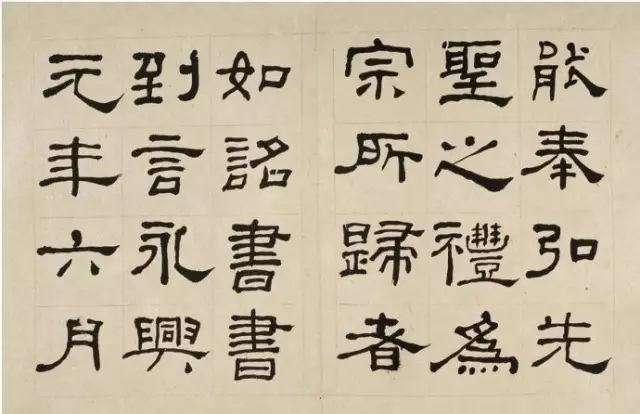 能奉弘先
聖之禮為
宗所歸者
如詔書書
到言永興
元年六月